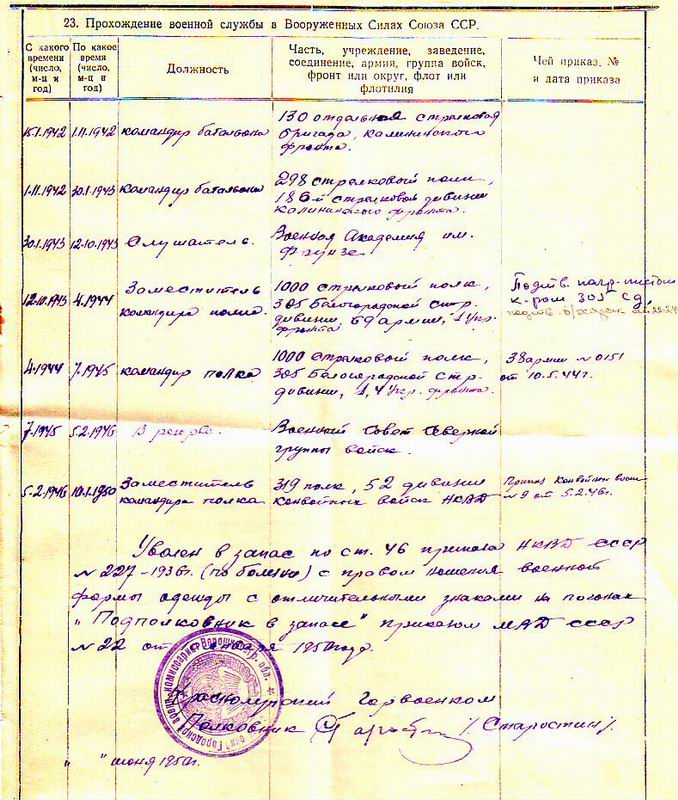 23. Прохождение военной службы в Вооруженных Силах Союза ССР.
С какого времени (число, м-ц и год)
По какое время (число, м-ц и год)
Должность
Часть, учреждение, заведение,
соединение, армия, группа войск,
фронт или округ, флот или
флотилия
Чей приказ, №
и дата приказа
130 отдельная стрелковая
15.1.1942 1.11.1942 командир батальона бригада, Калининского
фронта.
298 стрелковый полк,
1.11.1942 30.1.1943 командир батальона 186-й стрелковой дивизии
Калининского фронта.
30.1.1943 12.10.1943 Слушатель. Военная Академия им.
Фрунзе
Заместитель 1000 стрелковый полк, Подтв. нагр. листом
12.10.1943 4.1944 командира полка. 305 Белгородской стр. к-ром 305 СД,
дивизии 69 армии, 1 Укр.
фронта.
1000 стрелковый полк, 38 армии № 0151
4.1944 7.1945 командир полка 305 Белгородской стр. от 10.5.44г.
дивизии, 1, 4 Укр. фронта.
7.1945 5.2.1946 В резерве. Военный Совет Северной
группы войск.
Заместитель 319 полк, 52 дивизии Приказ Конвойных войск
5.2.1946 10.1.1950 командира полка конвойных войск НКВД № 9 от 5.2.46г.
Уволен в запас по ст. 46 приказа НКВД СССР
№ 227-1936г. (по болезни) с правом ношения военной
формы одежды с отличительными знаками на погонах
"Подполковник в запасе" приказом МВД СССР
№ 22 от января 1950 года.
Красноармейский Горвоенком
Полковник /Старостин/.
" " июня 1950г.